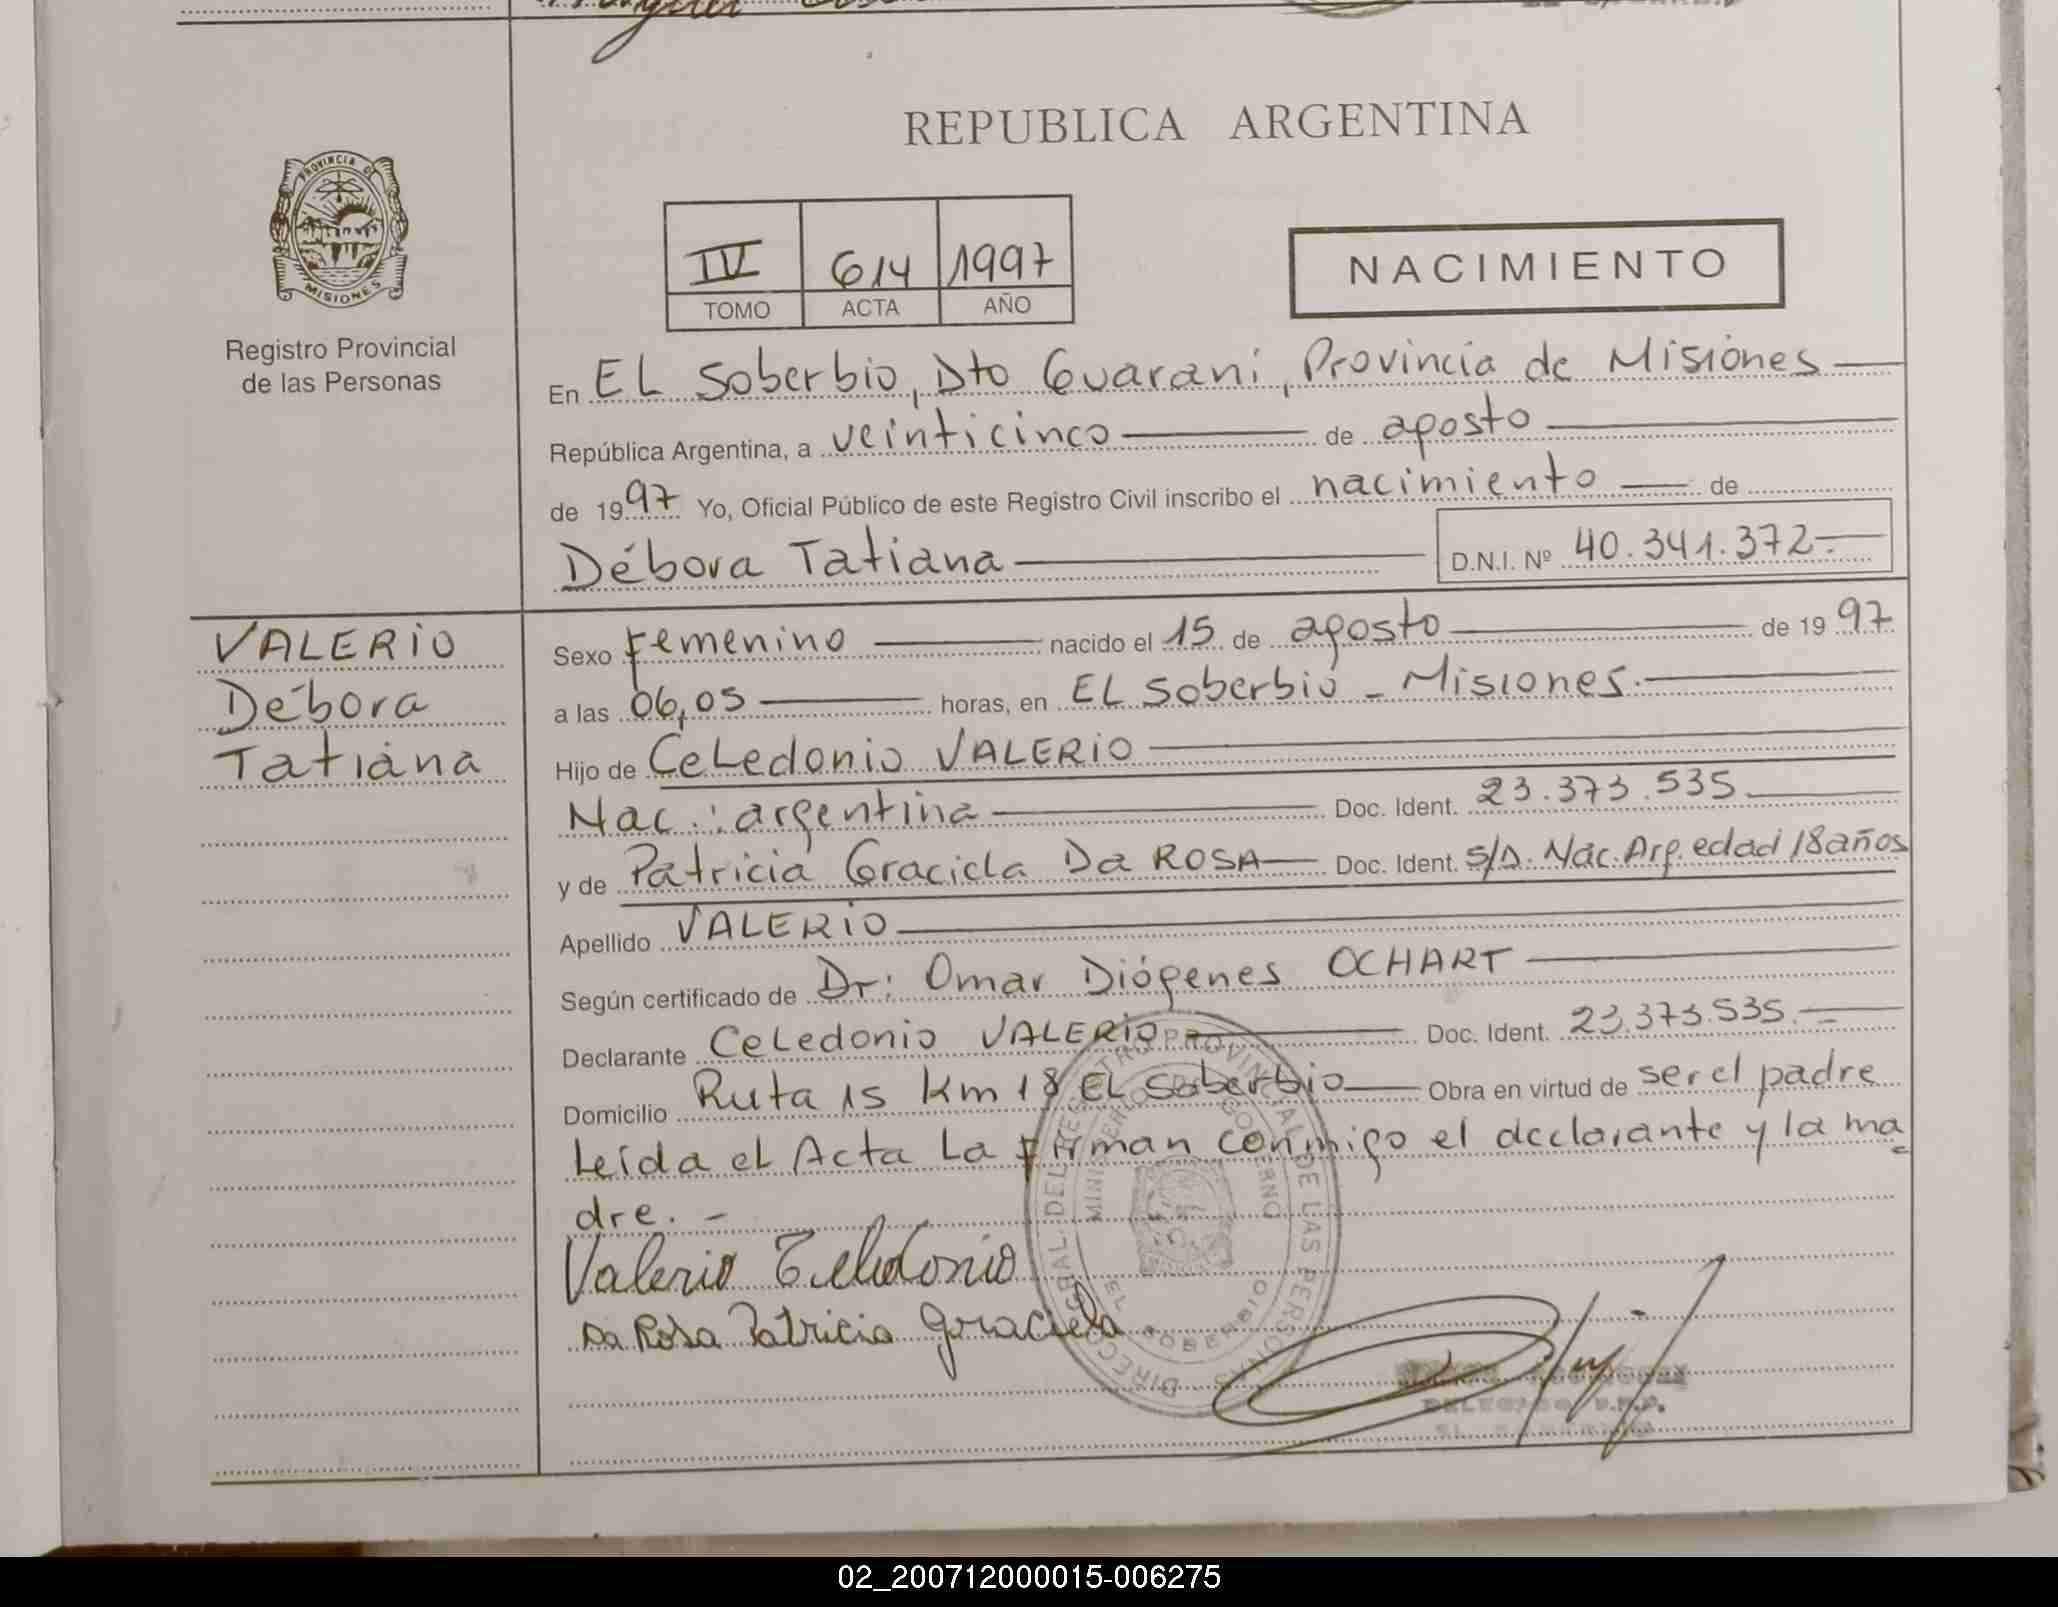 REPUBLICA ARGENTINA
PROVINCIA DE
MISIONES
Registro Provincial
de las Personas
IV 614 1997
TOMO ACTA AÑO
NACIMIENTO
En EL Soberbio, Dto Guaraní, Provincia de Misiones
República Argentina, a veinticinco de agosto
de 1997 Yo, Oficial Público de este Registro Civil inscribo el nacimiento de
Débora Tatiana D.N.I. Nº 40.341.372.-
VALERIO
Débora
Tatiana
Sexo femenino nacido el 15 de agosto de 1997
a las 06,05 horas, en EL Soberbio - Misiones.
Hijo de Celedonio VALERIO
Nac.: argentina Doc. Ident. 23.373.535
y de Patricia Graciela Da ROSA Doc. Ident. S/D. Nac. Arg. edad 18 años
Apellido VALERIO
Según certificado de Dr: Omar Diógenes OCHART
Declarante Celedonio VALERIO Doc. Ident. 23.373.535.-
Domicilio Ruta 15 Km 18 EL Soberbio Obra en virtud de ser el padre
Leída el Acta La firman conmigo el declarante y la ma
dre. -
Valerio Celedonio
Da Rosa Patricia Graciela
DIRECC. GRAL. DEL REGISTRO PROVINCIAL DE LAS PERSONAS
MINISTERIO DE GOBIERNO
EL SOBERBIO
02_200712000015-006275